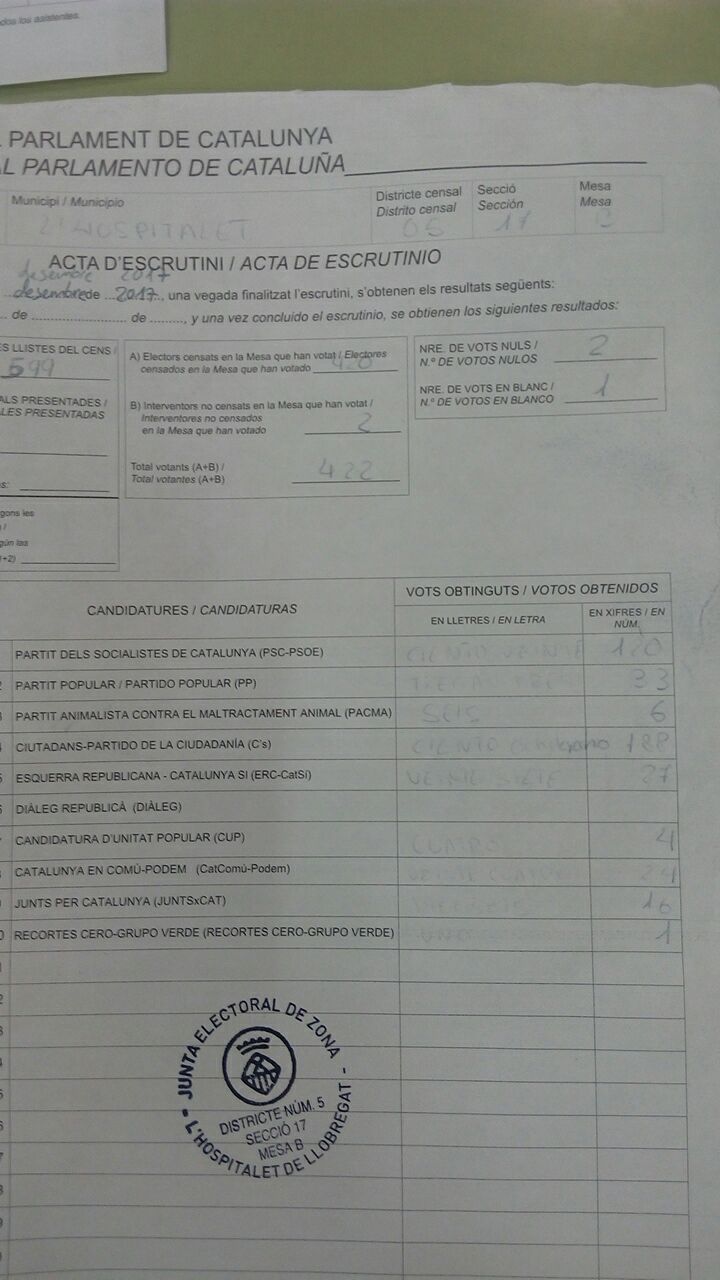 dos los asistentes.
PARLAMENT DE CATALUNYA
AL PARLAMENTO DE CATALUÑA
Municipi / Municipio
L'HOSPITALET
Districte censal
Distrito censal
05
Secció
Sección
17
Mesa
Mesa
ACTA D'ESCRUTINI / ACTA DE ESCRUTINIO
desembre 2017
desembre de ... 2017, una vegada finalitzat l'escrutini, s'obtenen els resultats següents:
de ........................ de ........., y una vez concluido el escrutinio, se obtienen los siguientes resultados:
ES LLISTES DEL CENS /
599
ALS PRESENTADES /
LES PRESENTADAS
s:
gons les
/
gún las
+2)
A) Electors censats en la Mesa que han votat / Electores
censados en la Mesa que han votado 420
B) Interventors no censats en la Mesa que han votat /
Interventores no censados
en la Mesa que han votado 2
Total votants (A+B) /
Total votantes (A+B) 422
NRE. DE VOTS NULS /
N.º DE VOTOS NULOS 2
NRE. DE VOTS EN BLANC /
N.º DE VOTOS EN BLANCO 1
CANDIDATURES / CANDIDATURAS
VOTS OBTINGUTS / VOTOS OBTENIDOS
EN LLETRES / EN LETRA
EN XIFRES / EN
NÚM.
PARTIT DELS SOCIALISTES DE CATALUNYA (PSC-PSOE) CIENTO VEINTE 120
PARTIT POPULAR / PARTIDO POPULAR (PP) 33
PARTIT ANIMALISTA CONTRA EL MALTRACTAMENT ANIMAL (PACMA) SEIS 6
CIUTADANS-PARTIDO DE LA CIUDADANÍA (C's) CIENTO 188
ESQUERRA REPUBLICANA - CATALUNYA SI (ERC-CatSí) VEINTISIETE 27
DIÀLEG REPUBLICÀ (DIÀLEG)
CANDIDATURA D'UNITAT POPULAR (CUP) CUATRO 4
CATALUNYA EN COMÚ-PODEM (CatComú-Podem) 24
JUNTS PER CATALUNYA (JUNTSxCAT) 16
RECORTES CERO-GRUPO VERDE (RECORTES CERO-GRUPO VERDE) 1
JUNTA ELECTORAL DE ZONA
DISTRICTE NÚM. 5
SECCIÓ 17
MESA B
L'HOSPITALET DE LLOBREGAT